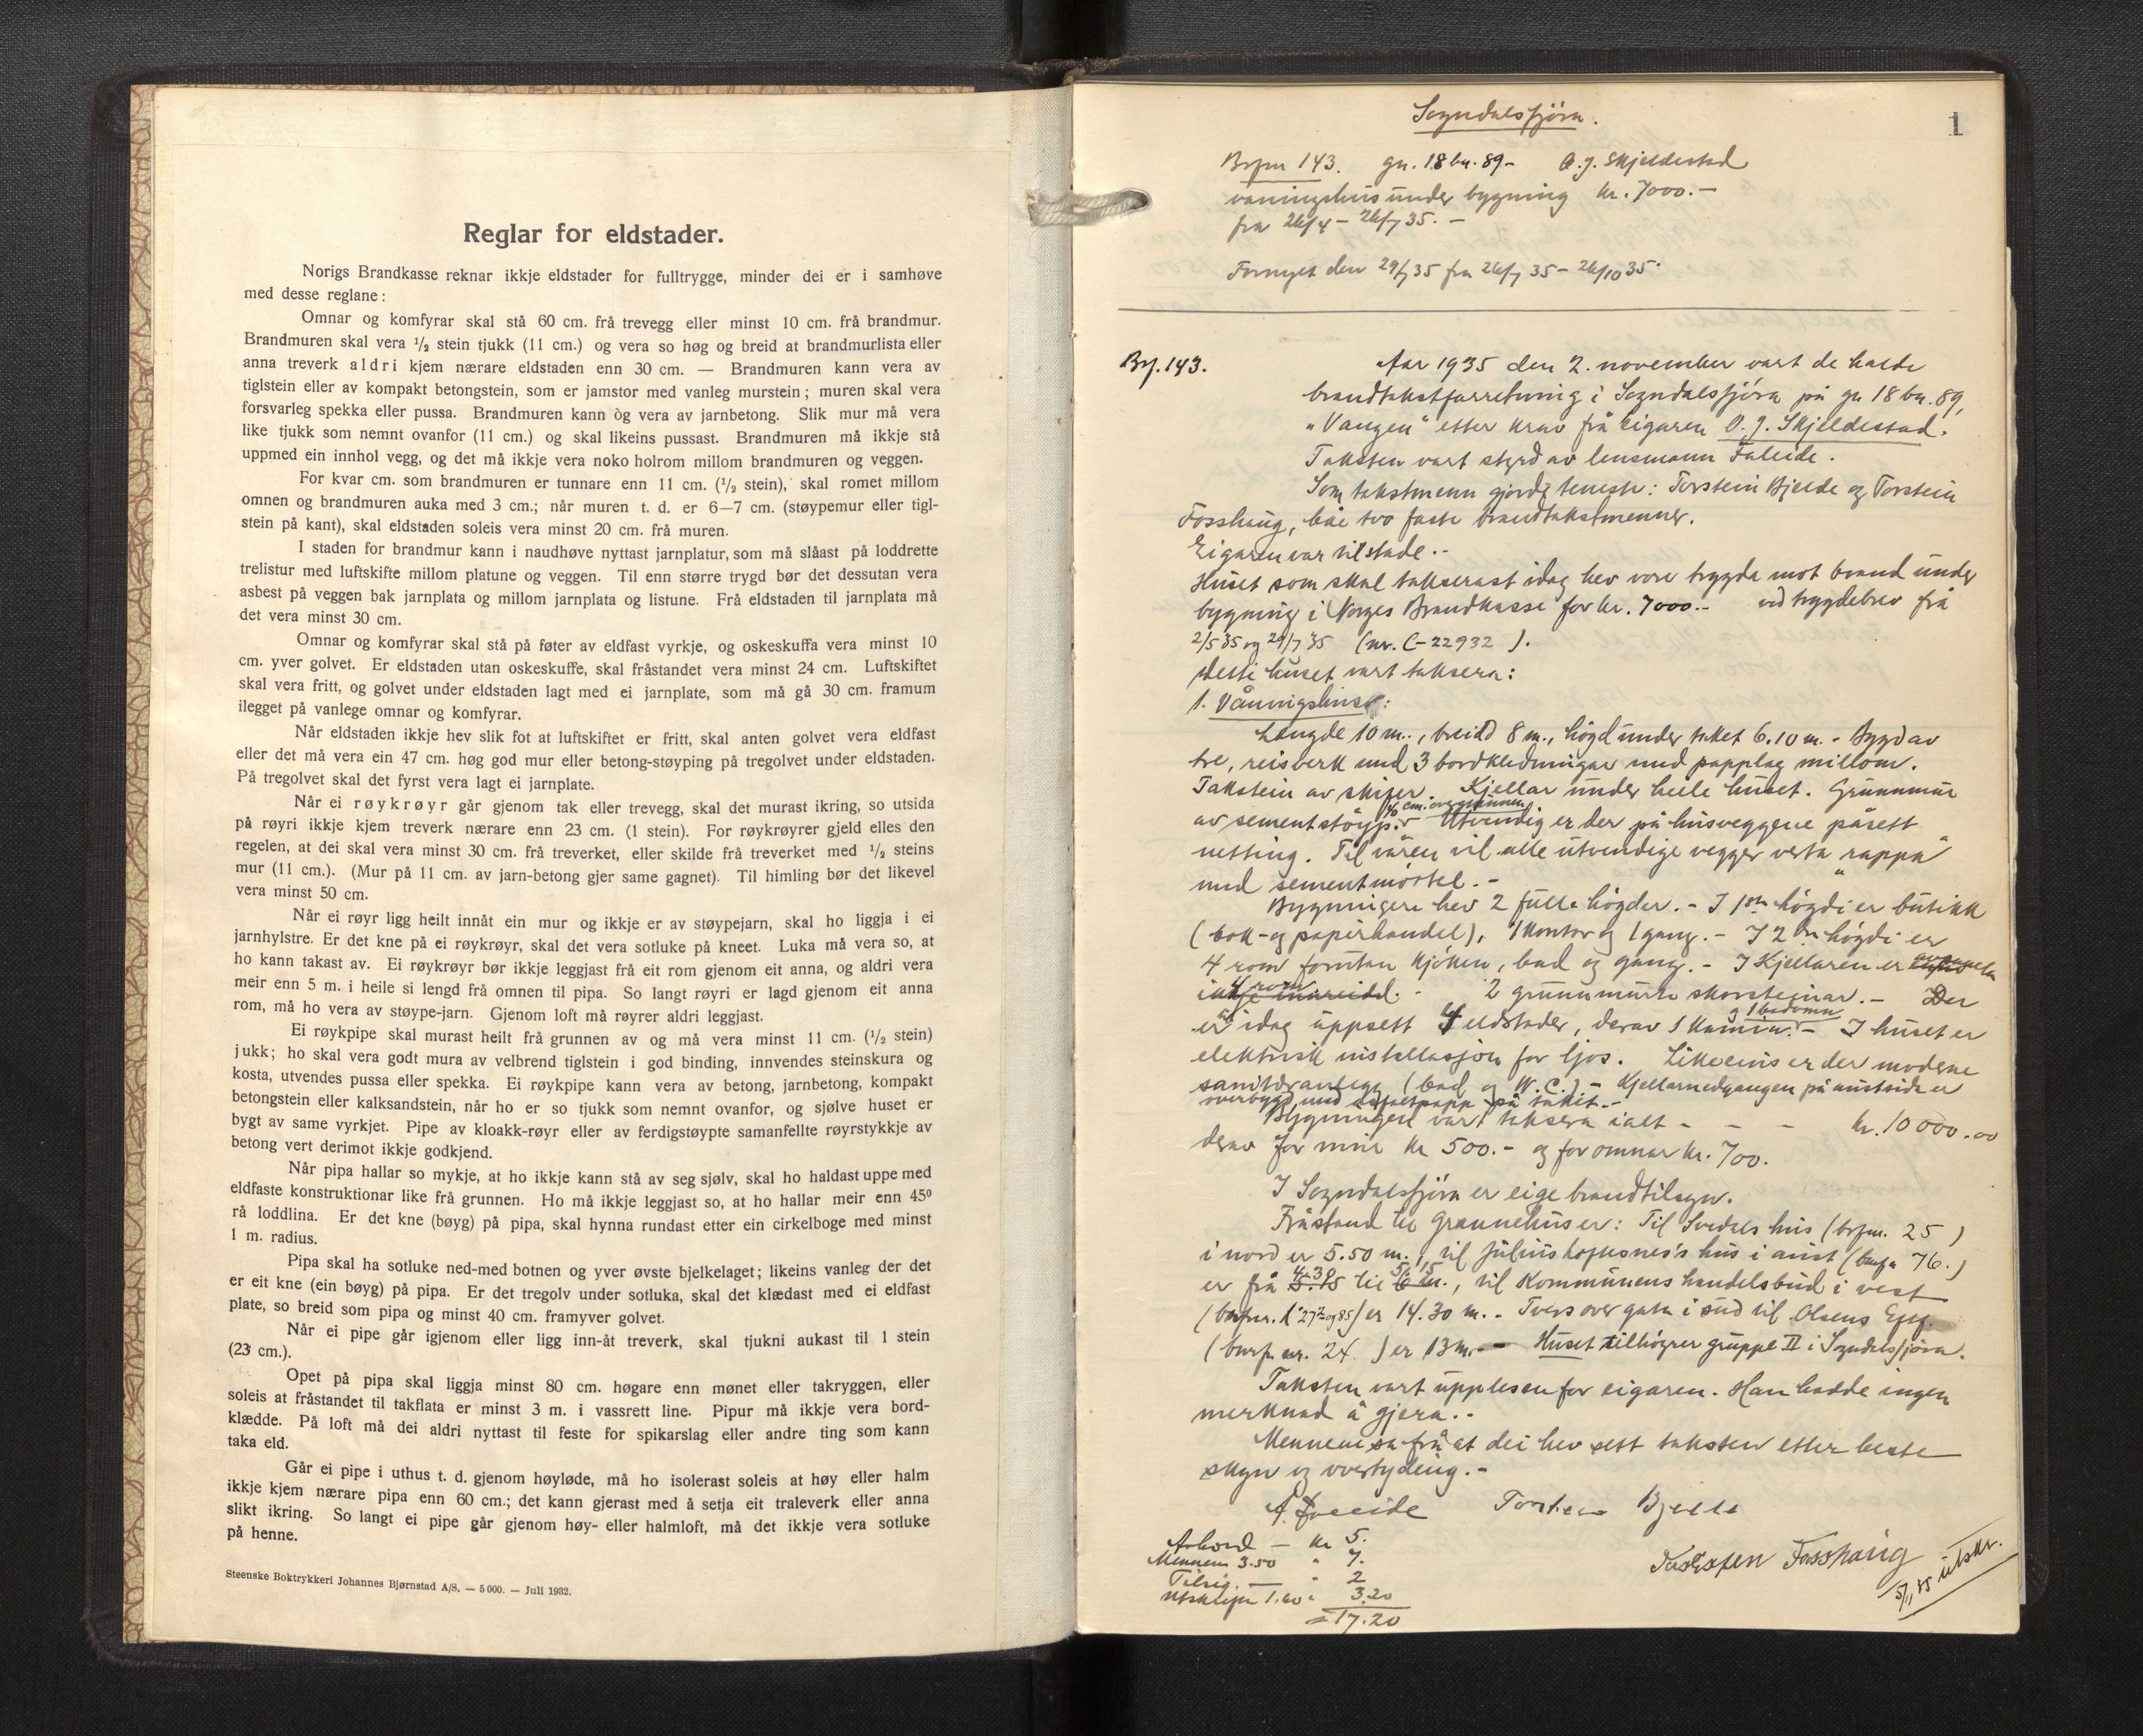 Reglar for eldstader.
Norigs Brandkasse reknar ikkje eldstader for fulltrygge, minder dei er i samhøve
med desse reglane:
Omnar og komfyrar skal stå 60 cm. frå trevegg eller minst 10 cm. frå brandmur.
Brandmuren skal vera 1/2 stein tjukk (11 cm.) og vera so høg og breid at brandmurlista eller
anna treverk aldri kjem nærare eldstaden enn 30 cm. — Brandmuren kann vera av
tiglstein eller av kompakt betongstein, som er jamstor med vanleg murstein; muren skal vera
forsvarleg spekka eller pussa. Brandmuren kann òg vera av jarnbetong. Slik mur må vera
like tjukk som nemnt ovanfor (11 cm.) og skal likeins pussast. Brandmuren må ikkje stå
uppmed ein innhol vegg, og det må ikkje vera noko holrom millom brandmuren og veggen.
For kvar cm. som brandmuren er tunnare enn 11 cm. (1/2 stein), skal romet millom
omnen og brandmuren auka med 3 cm.; når muren t. d. er 6—7 cm. (støypemur eller tigl-
stein på kant), skal eldstaden soleis vera minst 20 cm. frå muren.
I staden for brandmur kann i naudhøve nyttast jarnplatur, som må slåast på loddrette
trelistur med luftskifte millom platune og veggen. Til enn større trygd bør det dessutan vera
asbest på veggen bak jarnplata og millom jarnplata og listune. Frå eldstaden til jarnplata må
det vera minst 30 cm.
Omnar og komfyrar skal stå på føter av eldfast vyrkje, og oskeskuffa vera minst 10
cm. yver golvet. Er eldstaden utan oskeskuffe, skal fråstandet vera minst 24 cm. Luftskiftet
skal vera fritt, og golvet under eldstaden lagt med ei jarnplate, som må gå 30 cm. framum
ilegget på vanlege omnar og komfyrar.
Når eldstaden ikkje hev slik fot at luftskiftet er fritt, skal anten golvet vera eldfast
eller det må vera ein 47 cm. høg god mur eller betong-støyping på tregolvet under eldstaden.
På tregolvet skal det fyrst vera lagt ei jarnplate.
Når ei røykrøyr går gjenom tak eller trevegg, skal det murast ikring, so utsida
på røyri ikkje kjem treverk nærare enn 23 cm. (1 stein). For røykrøyrer gjeld elles den
regelen, at dei skal vera minst 30 cm. frå treverket, eller skilde frå treverket med 1/2 steins
mur (11 cm.). (Mur på 11 cm. av jarn-betong gjer same gagnet). Til himling bør det likevel
vera minst 50 cm.
Når ei røyr ligg heilt innåt ein mur og ikkje er av støypejarn, skal ho liggja i ei
jarnhylstre. Er det kne på ei røykrøyr, skal det vera sotluke på kneet. Luka må vera so, at
ho kann takast av. Ei røykrøyr bør ikkje leggjast frå eit rom gjenom eit anna, og aldri vera
meir enn 5 m. i heile si lengd frå omnen til pipa. So langt røyri er lagd gjenom eit anna
rom, må ho vera av støype-jarn. Gjenom loft må røyrer aldri leggjast.
Ei røykpipe skal murast heilt frå grunnen av og må vera minst 11 cm. (1/2 stein)
jukk; ho skal vera godt mura av velbrend tiglstein i god binding, innvendes steinskura og
kosta, utvendes pussa eller spekka. Ei røykpipe kann vera av betong, jarnbetong, kompakt
betongstein eller kalksandstein, når ho er so tjukk som nemnt ovanfor, og sjølve huset er
bygt av same vyrkjet. Pipe av kloakk-røyr eller av ferdigstøypte samanfellte røyrstykkje av
betong vert derimot ikkje godkjend.
Når pipa hallar so mykje, at ho ikkje kann stå av seg sjølv, skal ho haldast uppe med
eldfaste konstruktionar like frå grunnen. Ho må ikkje leggjast so, at ho hallar meir enn 45°
rå loddlina. Er det kne (bøyg) på pipa, skal hynna rundast etter ein cirkelboge med minst
1 m. radius.
Pipa skal ha sotluke ned-med botnen og yver øvste bjelkelaget; likeins vanleg der det
er eit kne (ein bøyg) på pipa. Er det tregolv under sotluka, skal det klædast med ei eldfast
plate, so breid som pipa og minst 40 cm. framyver golvet.
Når ei pipe går igjenom eller ligg inn-åt treverk, skal tjukni aukast til 1 stein
(23 cm.).
Opet på pipa skal liggja minst 80 cm. høgare enn mønet eller takryggen, eller
soleis at fråstandet til takflata er minst 3 m. i vassrett line. Pipur må ikkje vera bord-
klædde. På loft må dei aldri nyttast til feste for spikarslag eller andre ting som kann
taka eld.
Går ei pipe i uthus t. d. gjenom høyløde, må ho isolerast soleis at høy eller halm
ikkje kjem nærare pipa enn 60 cm.; det kann gjerast med å setja eit traleverk eller anna
slikt ikring. So langt ei pipe går gjenom høy- eller halmloft, må det ikkje vera sotluke
på henne.
Steenske Boktrykkeri Johannes Bjørnstad A/S. — 5000. — Juli 1932.
1
Sogndalsfjøra.
143. gn. 18 bn. 89 - O. J. Skjeldestad
vaningshus under bygning kr. 7000.-
fra 26/4 - 26/7 35. -
Fornyet den 29/7 35 fra 26/7 35 - 26/10 35.
143.
Aar 1935 den 2. november vart de halde
brandtakstforretning i Sogndalsfjøra på gn 18 bn. 89,
"Vangen" etter krav frå eigaren O. J. Skjeldestad.
Taksten vart styrd av lensmann Faleide.
Som takstmenn gjorde teneste: Torstein Bjelde og Torstein
Fosshaug, båe tvo faste brandtakstmenner.
Eigaren var tilstade. -
Huset som skal takserast idag hev vore trygda mot brand under
bygning i Norges Brandkasse for kr. 7000.- ved trygdebrev frå
2/5 35 og 29/7 35 (nr. C-22932).
Desse huset vart taksera:
1. Våningshus:
Lengde 10 m., breidd 8 m., høgd under taket 6.10 m. - Bygd av
tre, reisverk med 3 bordkledningar med papplag millom.
Takstein av skifer. Kjellar under heile huset. Grunnmur
av sementstøyp. Utvendig er der på husveggene påsett
netting. Til våren vil alle utvendige vegger verta "rappa"
med sementmørtel. -
Bygningen hev 2 fulle høgder. - I 1ste høgdi er butikk
(bok- og papirhandel), 1 kontor og 1 gang. - I 2dre høgdi er
4 rom foruten kjøken, bad og gang. - I Kjellaren er
4 rom. - 2 grunnmurte skorsteinar. - Der
er idag uppsett eldstader, derav 1 kamin og 1 badeomn. - I huset er
elektrisk installasjon for ljos. Likeleins er der moderne
sanitæranlegg (bad og W.C.) - Kjellarnedgangen på austsida er
overbygd med asfaltpapp på taket. -
Bygningen vart taksera ialt - - - kr. 10 000.00
derav for mur kr 500.- og for omnar kr. 700.
I Sogndalsfjøra er eige brandtilsyn.
Fråstand til grannehuser: Til hus (brfm. 25)
i nord er 5.50 m., til Julius hus i aust ( 76.)
er frå til, til Kommunens handelsbud i vest
er 14.30 m. - Tvers over gata i sud til Olsens
( nr. 24 ) er 13 m. - Huset tilhøyrer gruppe II i Sogndalsfjøra.
Taksten vart upplesen for eigaren. Han hadde ingen
merknad å gjera. -
Mennene sa frå at dei hev sett taksten etter beste
skyn og overtyding. -
A. Faleide Torstein Bjelde
Torstein Fosshaug
Arbeid - kr 5.
Mennene 3.50 " 7.
" 2
1.60 " 3.20
= 17.20
5/11 35 utskr.